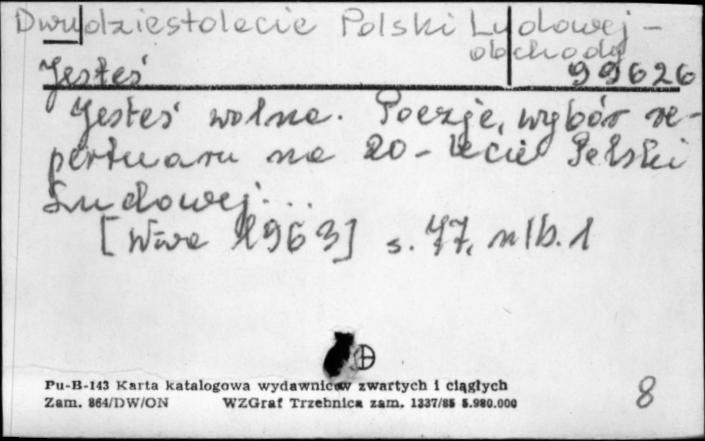 Dwudziestolecie Polski Ludowej -
obchody
Jesteś 99626
Jesteś wolna. Poezje, wybór re-
pertuaru na 20-lecie Polski
Ludowej...
[W-wa 1963] s. 47, nlb. 1
Pu-B-143 Karta katalogowa wydawnictw zwartych i ciągłych
Zam. 864/DW/ON WZGraf Trzebnica zam. 1337/85 5.980.000
8